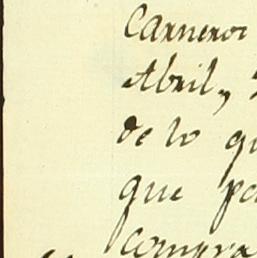 Carneros
Abril,
de lo qu
que po
compra